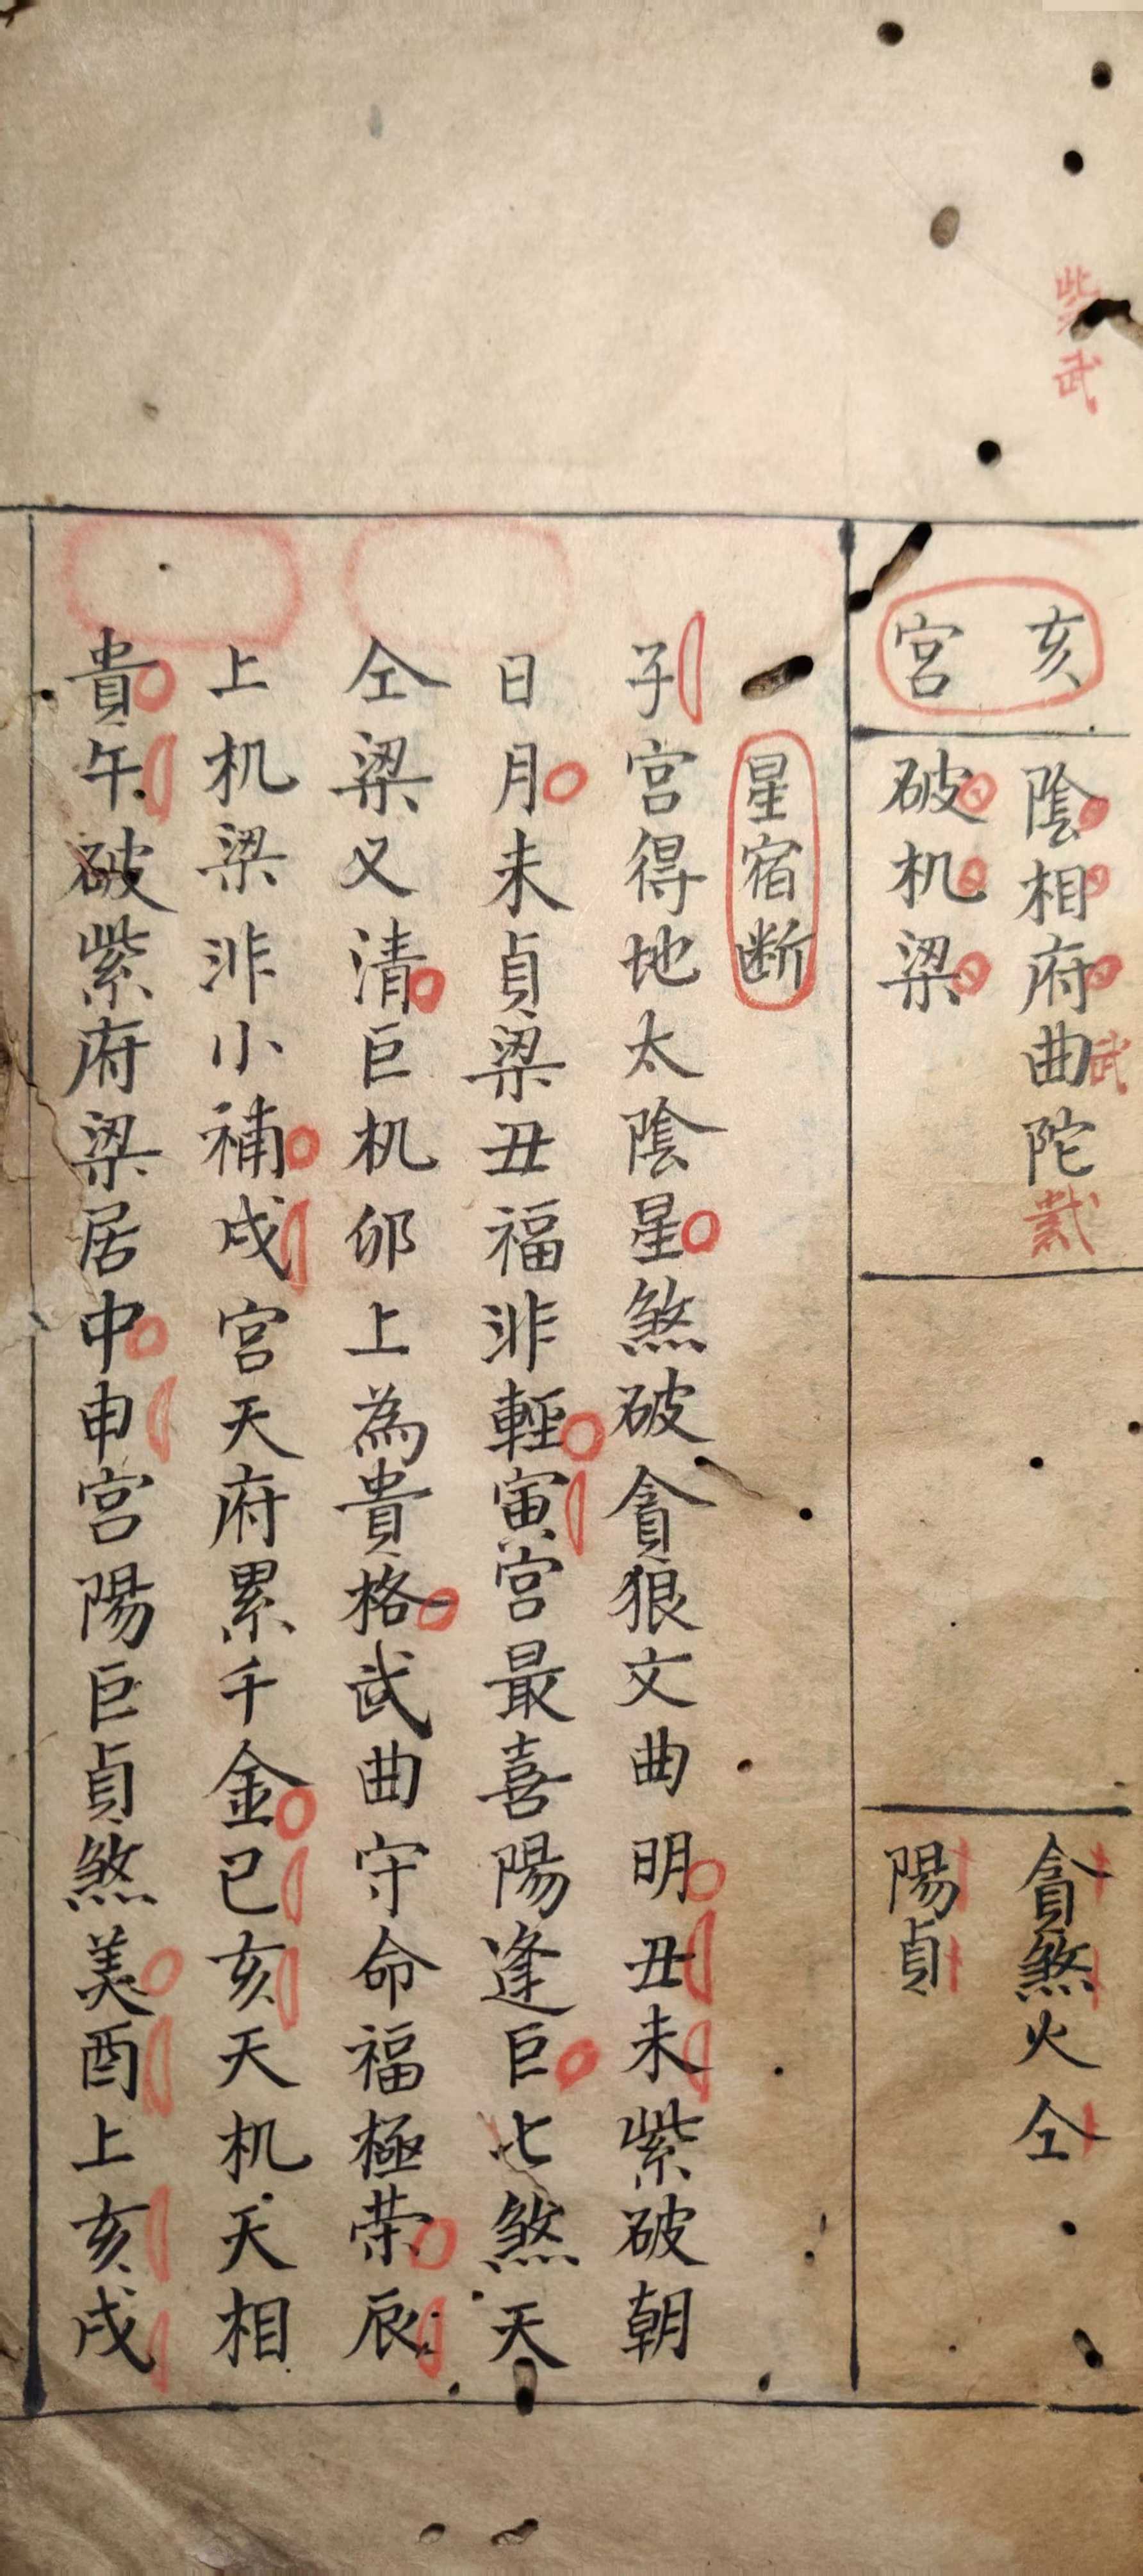 紫武
亥宮
陰相府曲陀
武
貳
破机梁
貪煞火仝
陽貞
星宿断
子宮得地太陰星煞破貪狼文曲明丑未紫破朝
日月未貞梁丑福非輕寅宮最喜陽逢巨七煞天
仝梁又清巨机卯上為貴格武曲守命福極荣辰
上机梁非小補戌宮天府累千金巳亥天机天相
貴午破紫府梁居中申宮陽巨貞煞美酉上亥戌